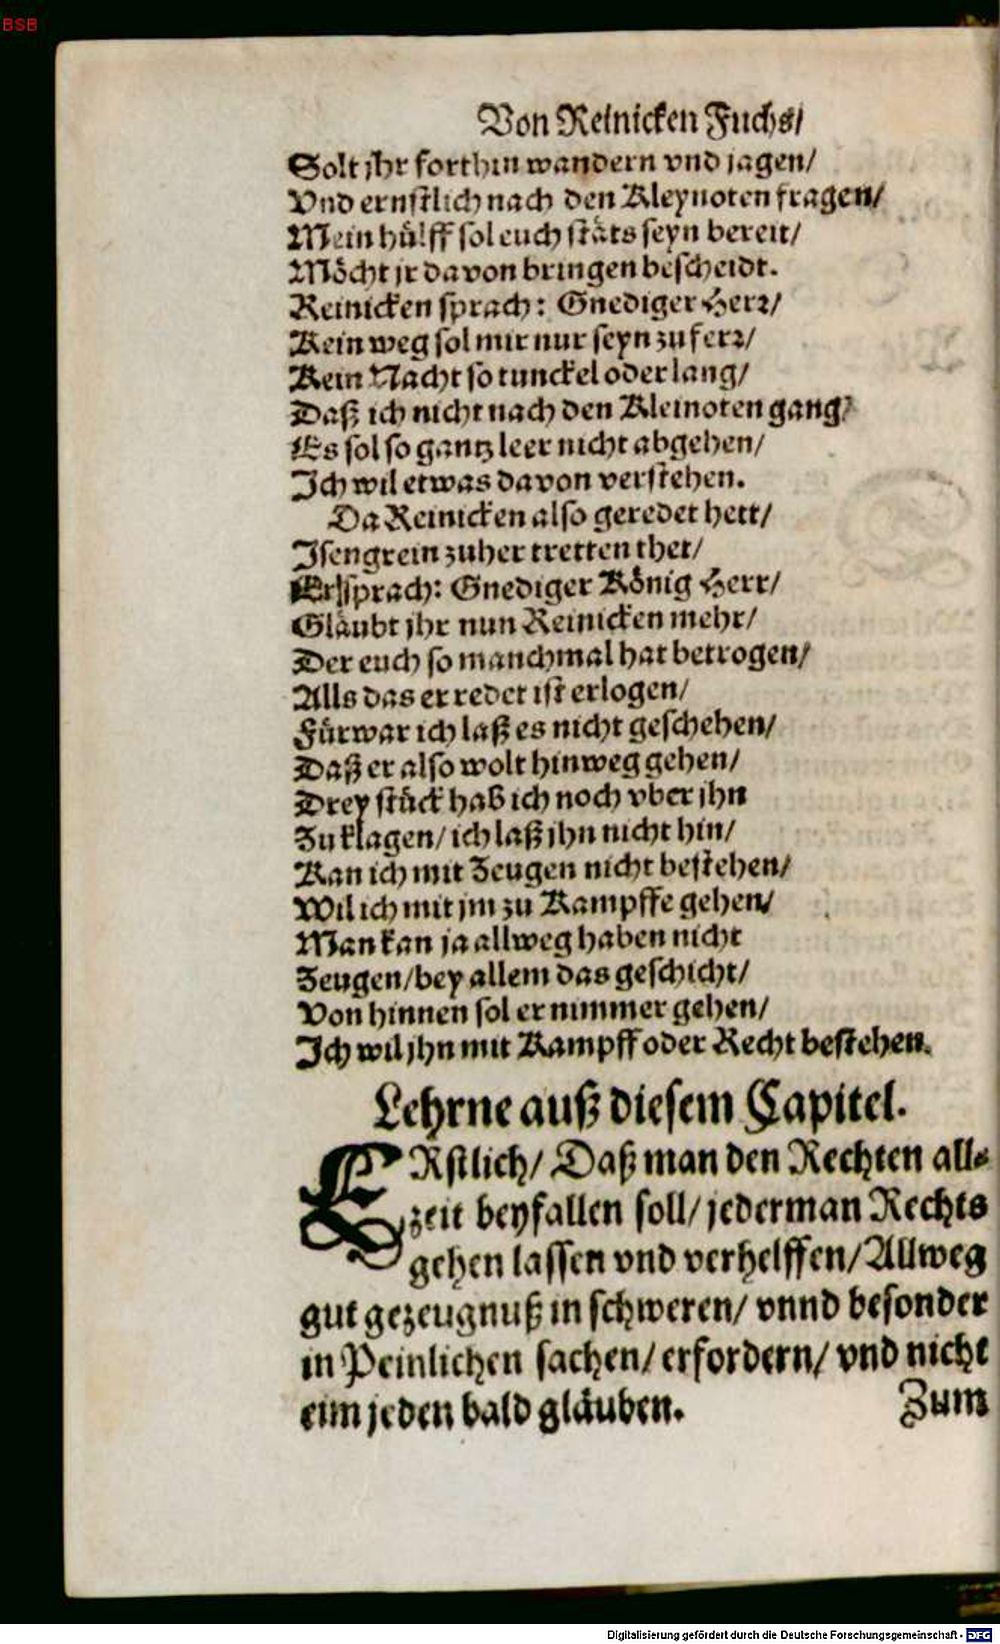 BSB
Von Reinicken Fuchs/
Solt jhr forthin wandern vnd jagen/
Vnd ernstlich nach den Kleynoten fragen/
Mein hülff sol euch stäts seyn bereit/
Möcht jr davon bringen bescheidt.
Reinicken sprach: Gnediger Herr/
Kein weg sol mir nur seyn zu ferr/
Kein Nacht so tunckel oder lang/
Daß ich nicht nach den Kleinoten gang/
Es sol so gantz leer nicht abgehen/
Ich wil etwas davon verstehen.
Da Reinicken also geredet hett/
Isengrein zuher tretten thet/
Er sprach: Gnediger König Herr/
Gläubt jhr nun Reinicken mehr/
Der euch so manchmal hat betrogen/
Alls das er redet ist erlogen/
Fürwar ich laß es nicht geschehen/
Daß er also wolt hinweg gehen/
Drey stück hab ich noch vber jhn
Zu klagen/ ich laß jhn nicht hin/
Kan ich mit Zeugen nicht bestehen/
Wil ich mit jm zu Kampffe gehen/
Man kan ja allweg haben nicht
Zeugen/ bey allem das geschicht/
Von hinnen sol er nimmer gehen/
Ich wil jhn mit Kampff oder Recht bestehen.
Lehrne auß diesem Capitel.
ERstlich/ Daß man den Rechten all-
zeit beyfallen soll/ jederman Rechts
gehen lassen vnd verhelffen/ Allweg
gut gezeugnuß in schweren/ vnnd besonder
in Peinlichen sachen/ erfordern/ vnd nicht
eim jeden bald gläuben.
Zum
Digitalisierung gefördert durch die Deutsche Forschungsgemeinschaft - DFG